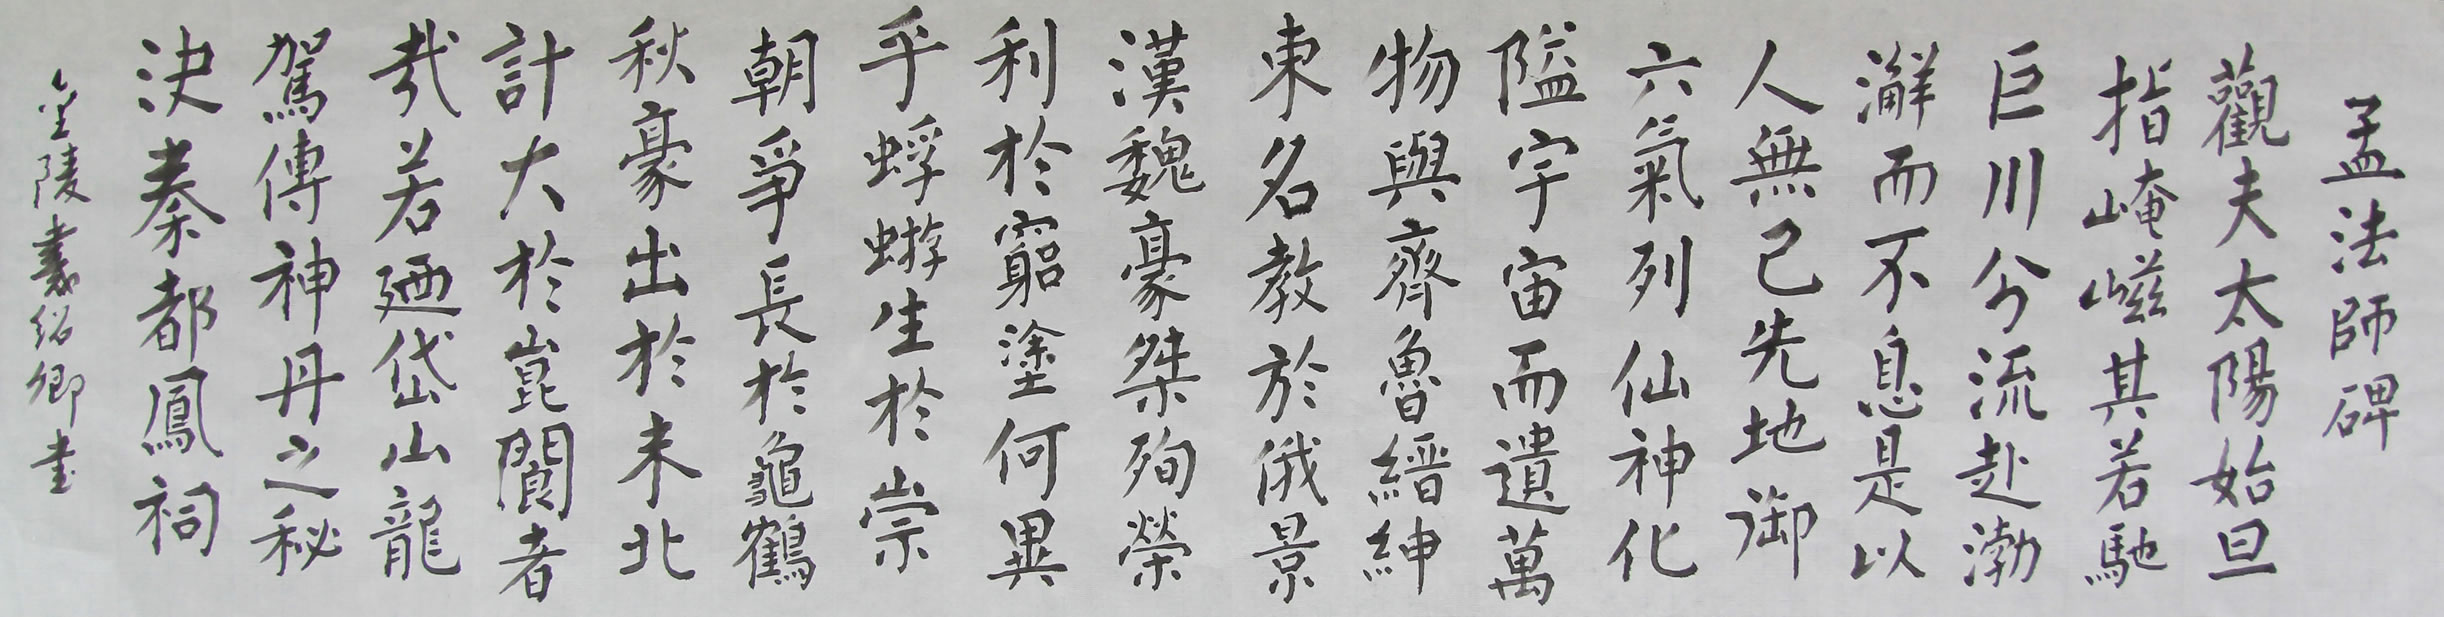 孟法師碑
觀夫太陽始旦
指崦嵫其若馳
巨川分流赴渤
澥而不息是以
人無己先地御
六氣列仙神化
隘宇宙而遺萬
物與齊魯縉紳
東名教於俄景
漢魏豪桀殉榮
利於窮塗何異
乎蜉蝣生於崇
朝爭長於龜鶴
秋豪出於未北
計大於崑閬者
哉若廼岱山龍
駕傳神丹之秘
決秦都鳳祠
金陵 紹卿書